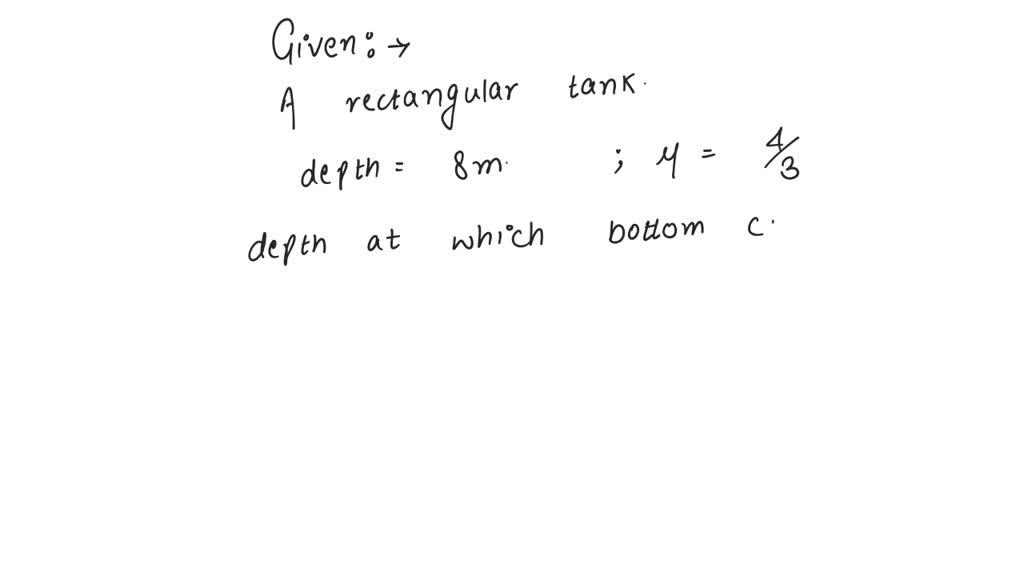 Given :→
A rectangular tank.
depth = 8m. ; μ = 4/3
depth at which bottom c.